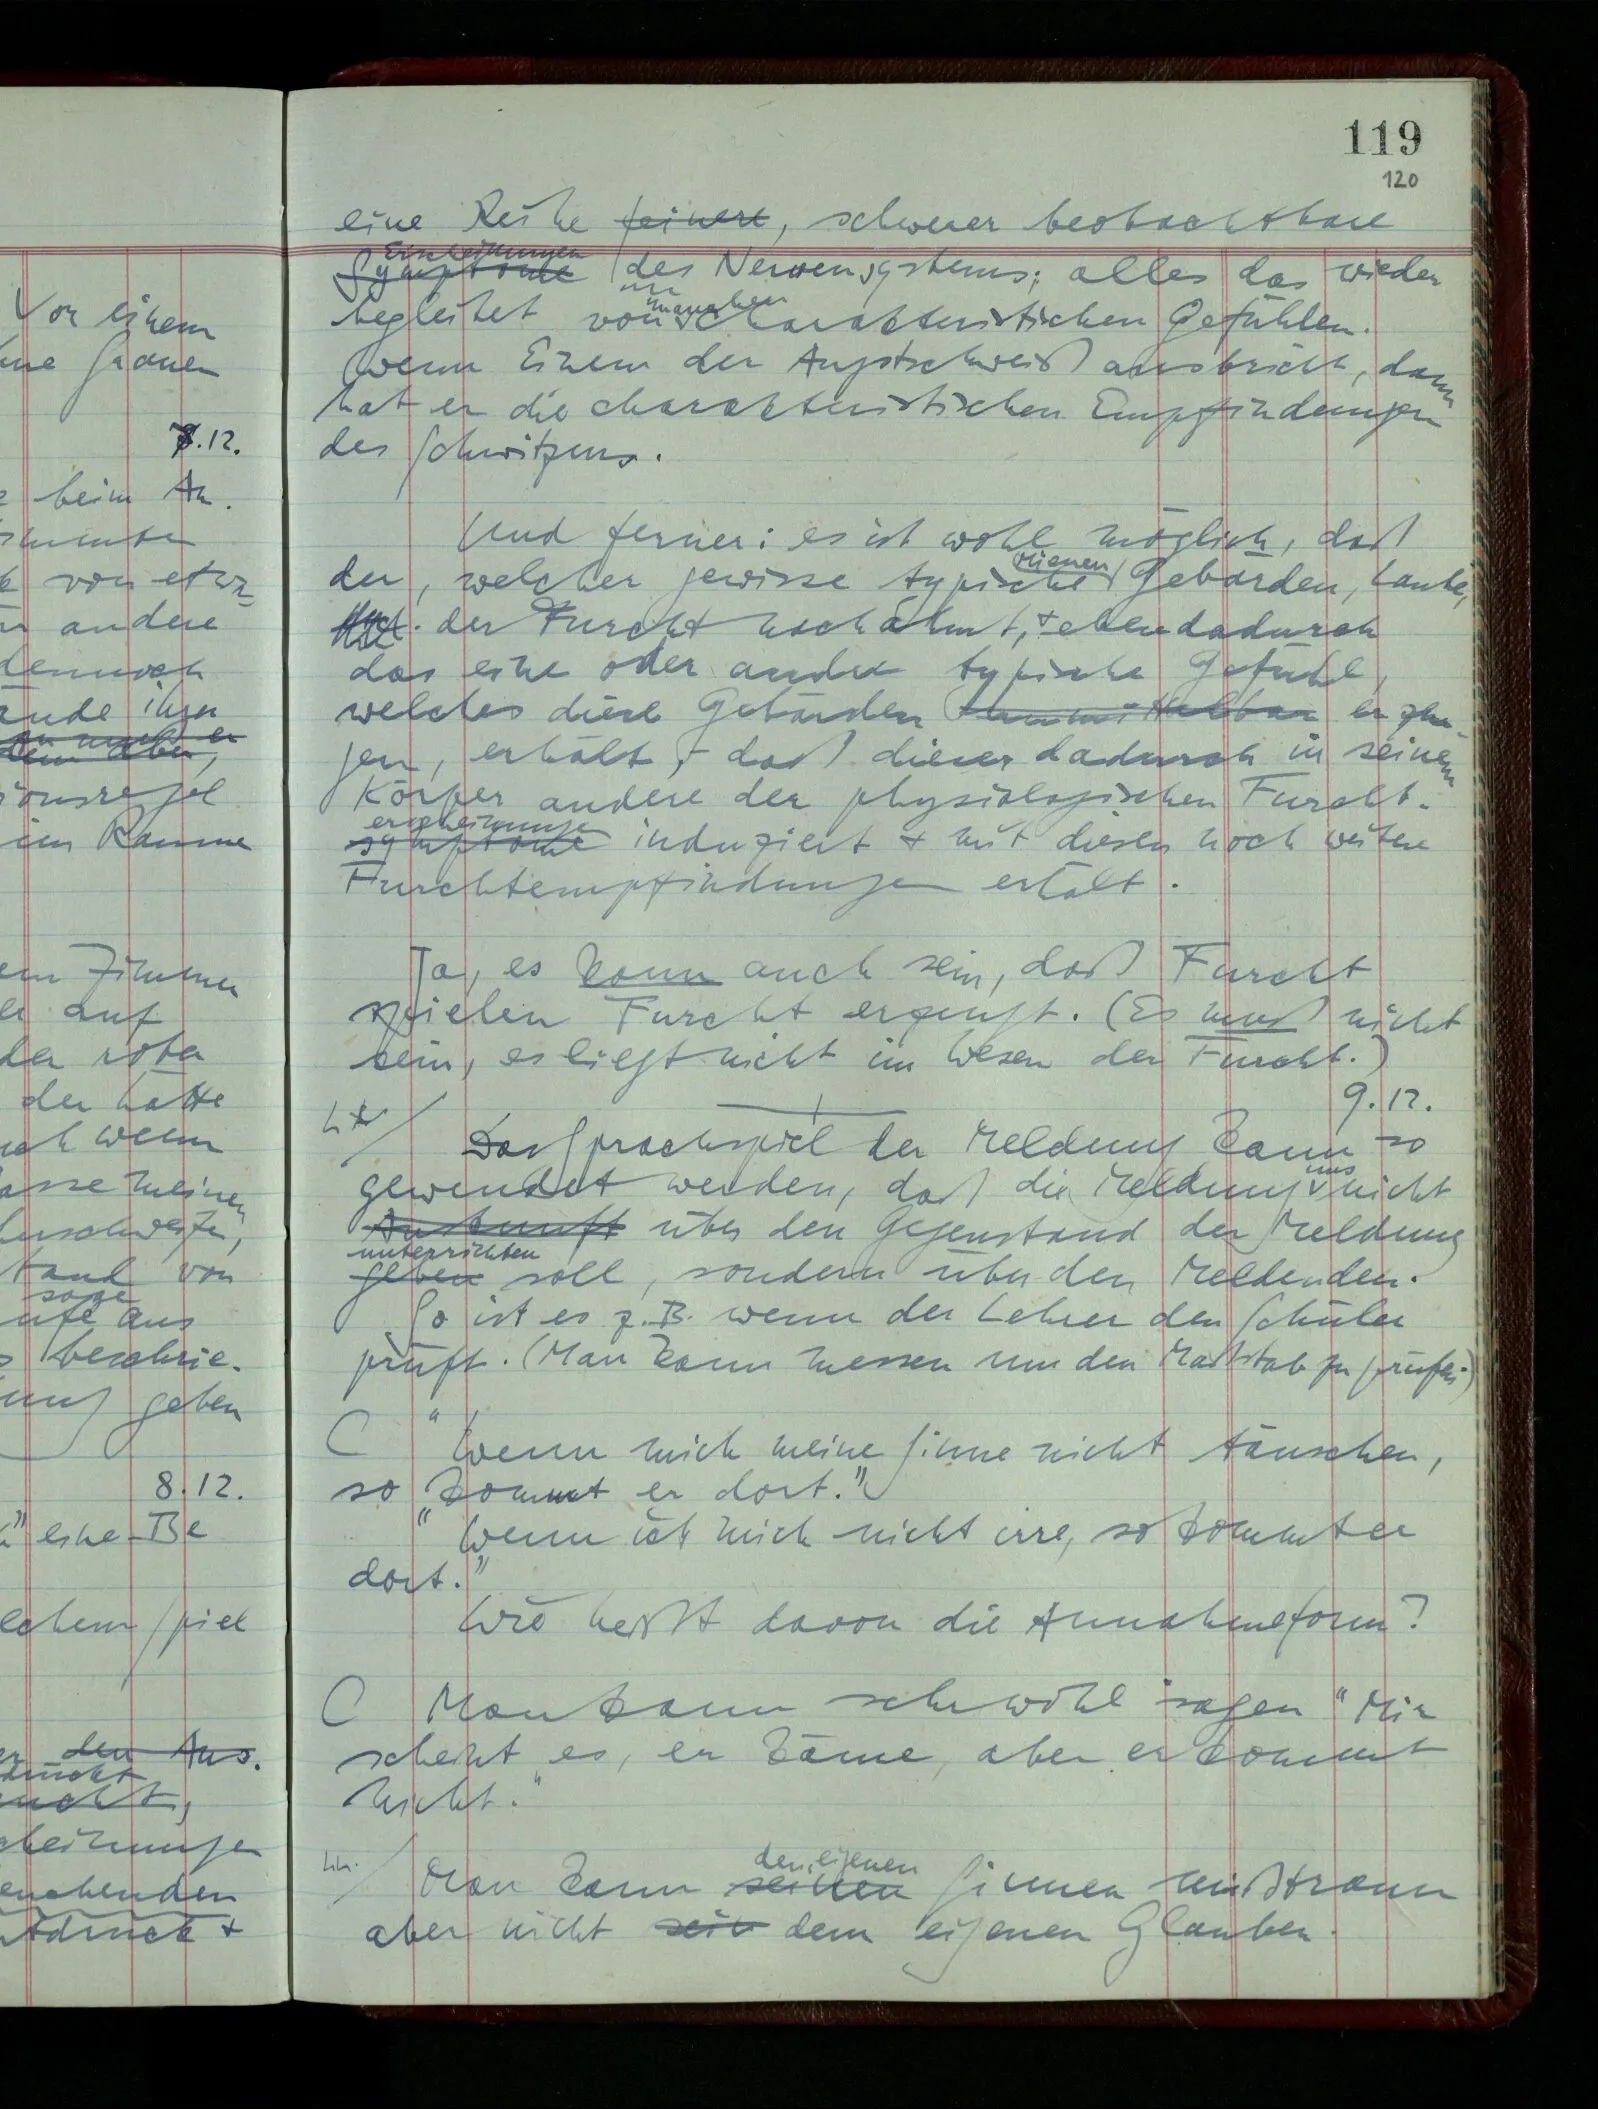 Vor einem
Grauen
7.12.
beim An-
von etwa
andere
dennoch
ihrer
im Raume
Zimmer
auf
der rote
der hatte
wenn
meinen
von
sage
rufe aus
beschrie-
geben
8.12.
eine Be
Spiel
den Aus-
druckt
&
119
120
eine Reihe feinere, schwerer beobachtbare
Erscheinungen
Symptome des Nervensystems; alles das wieder
manchen
begleitet von charakteristischen Gefühlen.
Wenn Einem der Angstschweiß ausbricht, dann
hat er die charakteristischen Empfindungen
des Schwitzens.
Und ferner: es ist wohl möglich, daß
Mienen
der, welcher gewisse typische Gebärden, Laute,
der Furcht nachahmt, & eben dadurch
das eine oder andere typische Gefühl,
welches diese Gebärden unmittelbar erzeu-
gen, erhält, & daß dieser dadurch in seinem
Körper andere der physiologischen Furcht-
erscheinungen
symptome induziert & mit diesen noch weitere
Furchtempfindungen erhält.
Ja, es kann auch sein, daß Furcht
spielen Furcht erzeugt. (Es muß nicht
sein, es liegt nicht im Wesen der Furcht.)
9.12.
Das Sprachspiel der Meldung kann so
uns
gewendet werden, daß die Meldung nicht
Auskunft über den Gegenstand der Meldung
unterrichten
geben soll, sondern über den Meldenden.
So ist es z.B. wenn der Lehrer den Schüler
prüft. (Man kann messen um den Maßstab zu prüfen.)
C "Wenn mich meine Sinne nicht täuschen,
so kommt er dort."
"Wenn ich mich nicht irre, so kommt er
dort."
Wie heißt davon die Annahmeform?
C Man kann sehr wohl sagen "Mir
scheint es, er käme, aber er kommt
nicht."
den eigenen
Man kann seinen Sinnen mißtrauen
aber nicht sein dem eigenen Glauben.